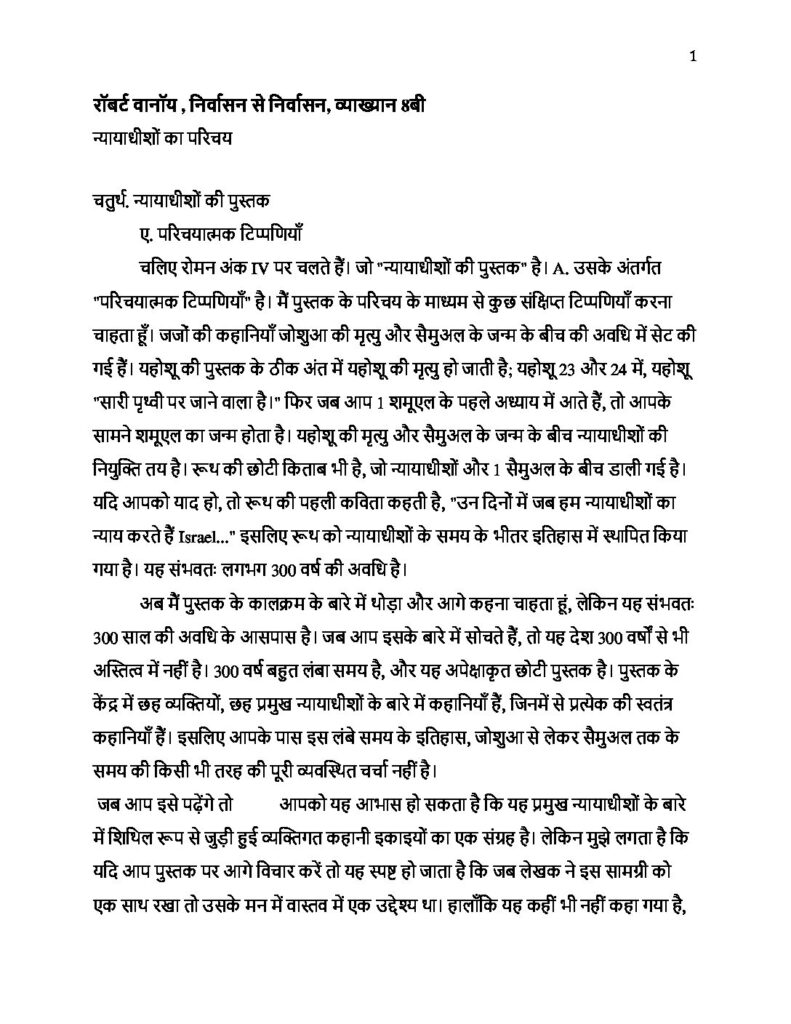 1
रॉबर्ट वानॉय , निर्वासन से निर्वासन, व्याख्यान 8बी
न्यायाधीशों का परिचय
चतुर्थ. न्यायाधीशों की पुस्तक
ए. परिचयात्मक टिप्पणियाँ
चलिए रोमन अंक IV पर चलते हैं। जो "न्यायाधीशों की पुस्तक" है। A. उसके अंतर्गत
"परिचयात्मक टिप्पणियाँ" है। मैं पुस्तक के परिचय के माध्यम से कुछ संक्षिप्त टिप्पणियाँ करना
चाहता हूँ। जजों की कहानियाँ जोशुआ की मृत्यु और सैमुअल के जन्म के बीच की अवधि में सेट की
गई हैं। यहोशू की पुस्तक के ठीक अंत में यहोशू की मृत्यु हो जाती है; यहोशू 23 और 24 में, यहोशू
"सारी पृथ्वी पर जाने वाला है।" फिर जब आप 1 शमूएल के पहले अध्याय में आते हैं, तो आपके
सामने शमूएल का जन्म होता है। यहोशू की मृत्यु और सैमुअल के जन्म के बीच न्यायाधीशों की
नियुक्ति तय है। रूथ की छोटी किताब भी है, जो न्यायाधीशों और 1 सैमुअल के बीच डाली गई है।
यदि आपको याद हो, तो रूथ की पहली कविता कहती है, "उन दिनों में जब हम न्यायाधीशों का
न्याय करते हैं Israel..." इसलिए रूथ को न्यायाधीशों के समय के भीतर इतिहास में स्थापित किया
गया है। यह संभवतः लगभग 300 वर्ष की अवधि है।
अब मैं पुस्तक के कालक्रम के बारे में थोड़ा और आगे कहना चाहता हूं, लेकिन यह संभवतः
300 साल की अवधि के आसपास है। जब आप इसके बारे में सोचते हैं, तो यह देश 300 वर्षों से भी
अस्तित्व में नहीं है। 300 वर्ष बहुत लंबा समय है, और यह अपेक्षाकृत छोटी पुस्तक है। पुस्तक के
केंद्र में छह व्यक्तियों, छह प्रमुख न्यायाधीशों के बारे में कहानियाँ हैं, जिनमें से प्रत्येक की स्वतंत्र
कहानियाँ हैं। इसलिए आपके पास इस लंबे समय के इतिहास, जोशुआ से लेकर सैमुअल तक के
समय की किसी भी तरह की पूरी व्यवस्थित चर्चा नहीं है।
जब आप इसे पढ़ेंगे तो आपको यह आभास हो सकता है कि यह प्रमुख न्यायाधीशों के बारे
में शिथिल रूप से जुड़ी हुई व्यक्तिगत कहानी इकाइयों का एक संग्रह है। लेकिन मुझे लगता है कि
यदि आप पुस्तक पर आगे विचार करें तो यह स्पष्ट हो जाता है कि जब लेखक ने इस सामग्री को
एक साथ रखा तो उसके मन में वास्तव में एक उद्देश्य था। हालाँकि यह कहीं भी नहीं कहा गया है,